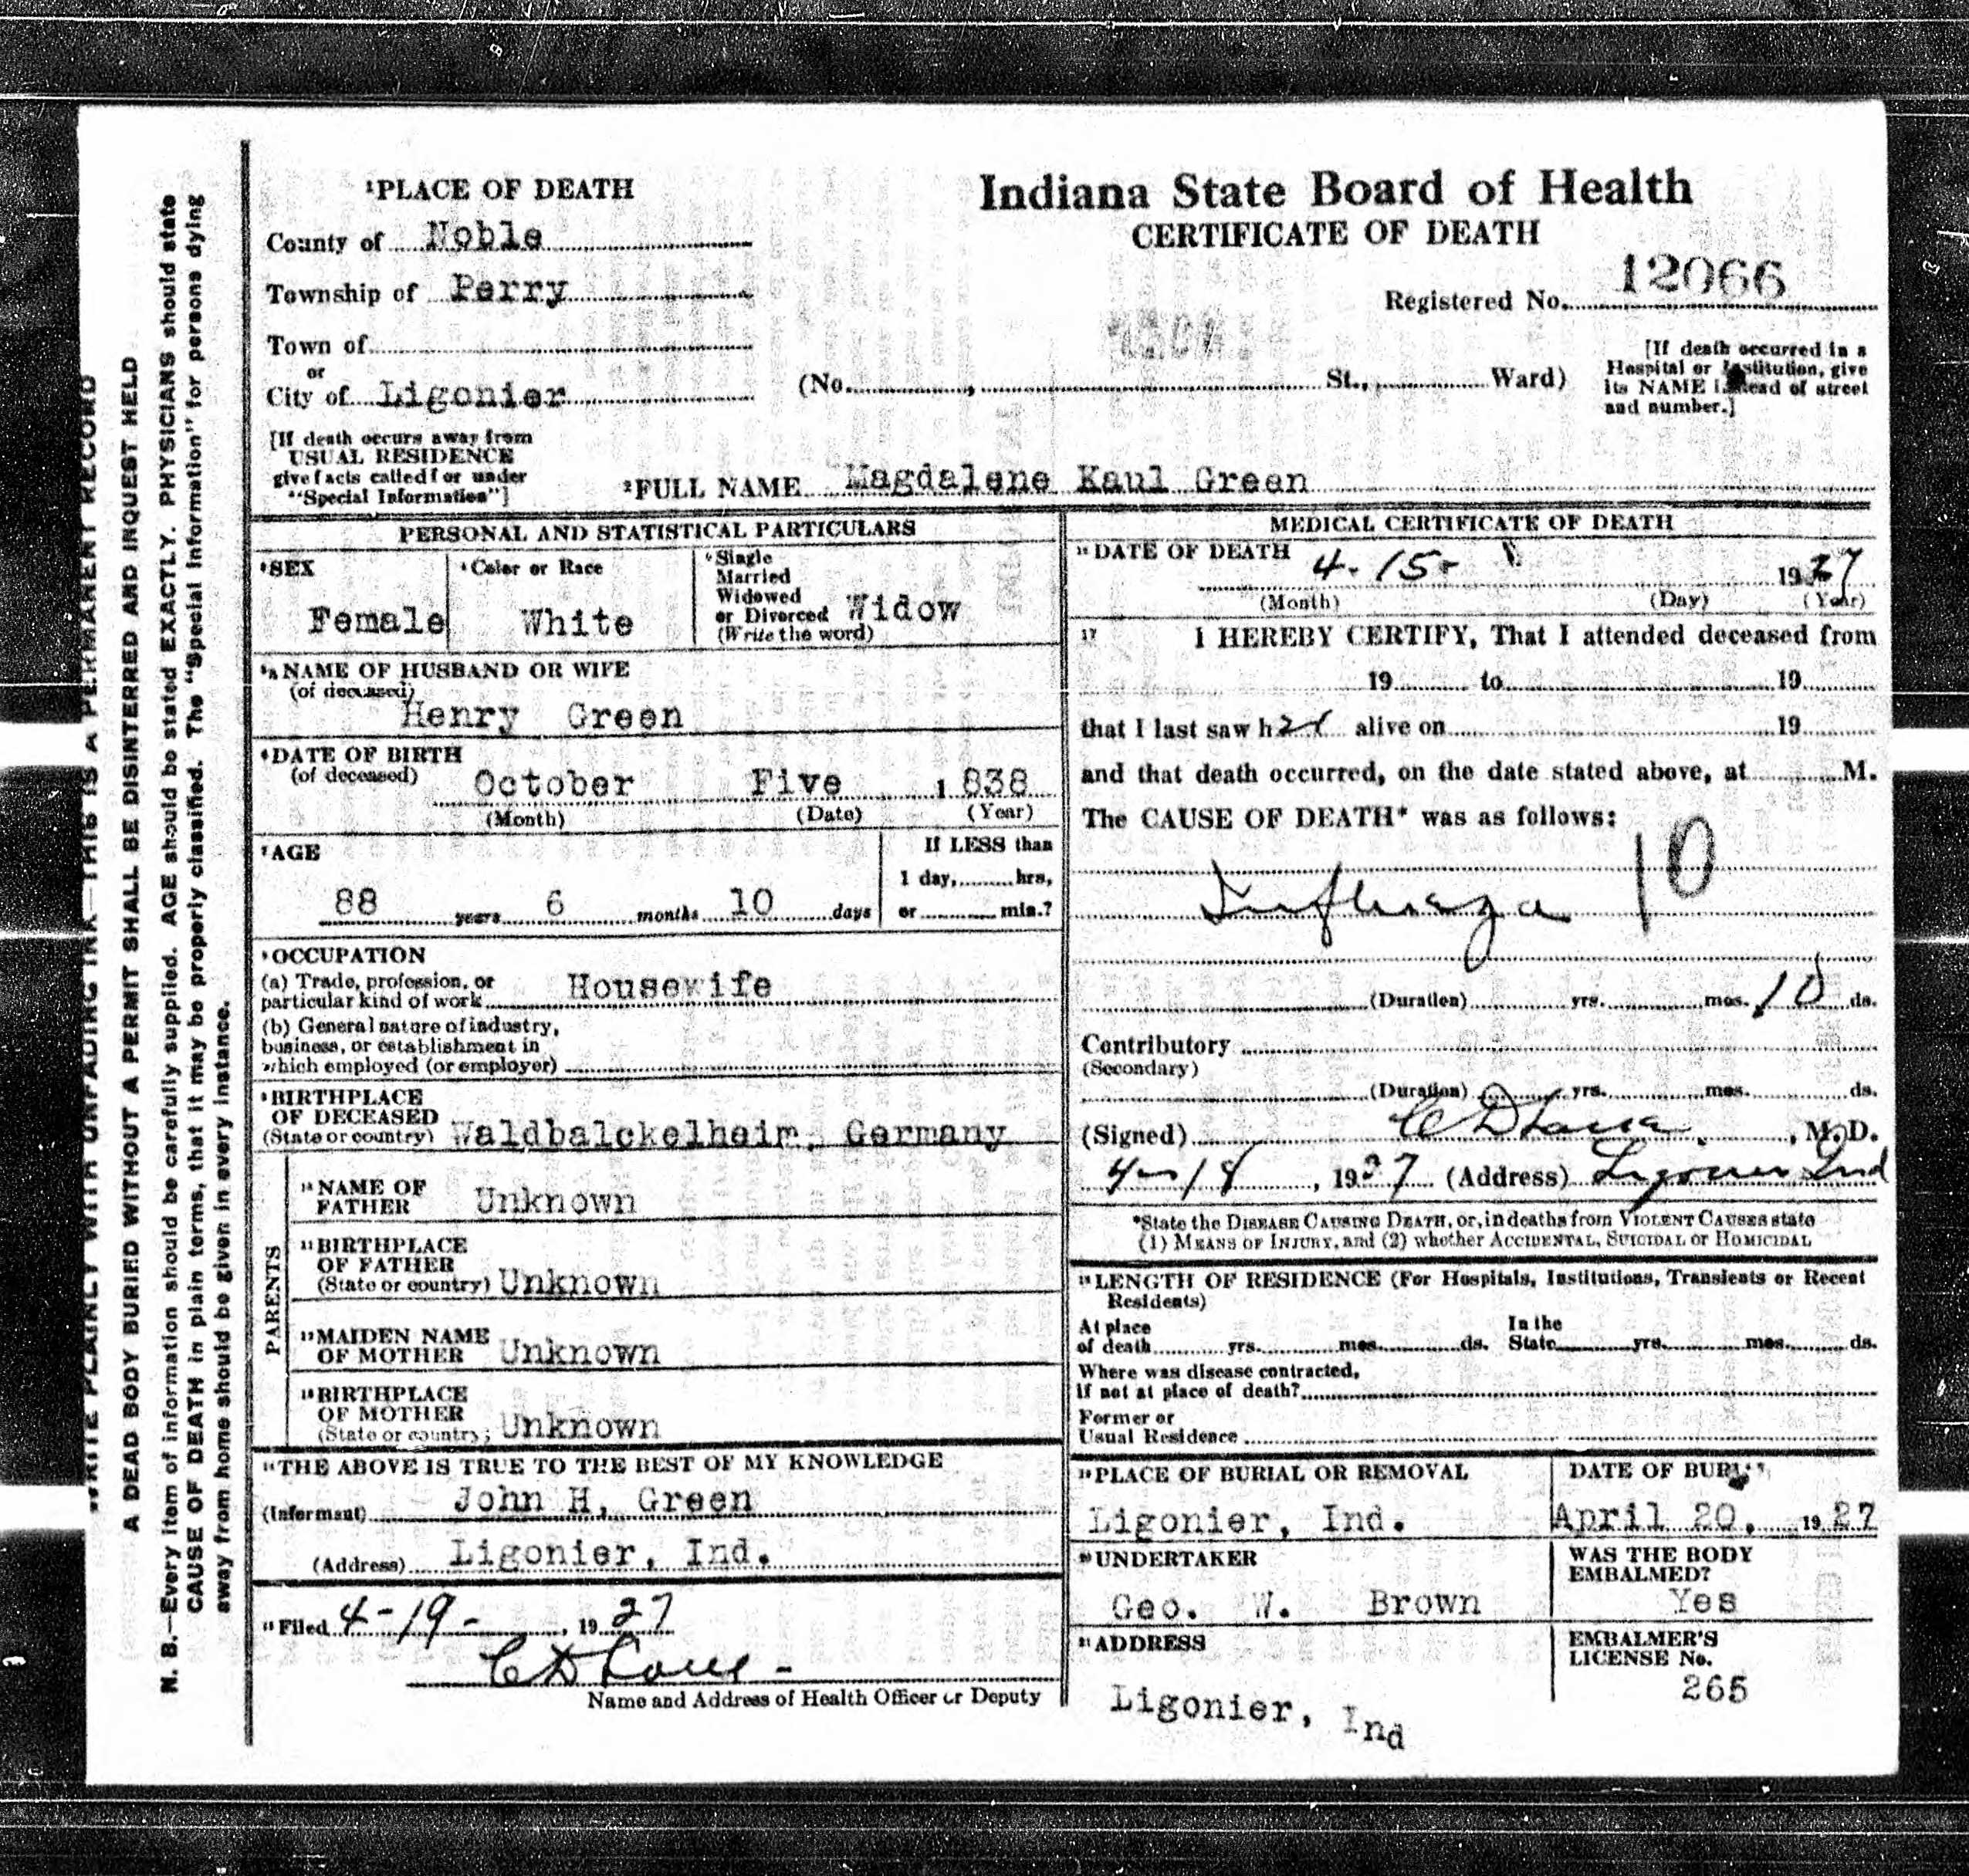 WRITE PLAINLY WITH UNFADING INK—THIS IS A PERMANENT RECORD
A DEAD BODY BURIED WITHOUT A PERMIT SHALL BE DISINTERRED AND INQUEST HELD
N. B.—Every item of information should be carefully supplied. AGE should be stated EXACTLY. PHYSICIANS should state
CAUSE OF DEATH in plain terms, that it may be properly classified. The "Special Information" for persons dying
away from home should be given in every instance.
Indiana State Board of Health
CERTIFICATE OF DEATH
Registered No. 12066
1 PLACE OF DEATH
County of Noble
Township of Perry
Town of
or
City of Ligonier
(No. , St., Ward)
[If death occurred in a
Hospital or Institution, give
its NAME instead of street
and number.]
[If death occurs away from
USUAL RESIDENCE
give facts called for under
"Special Information"]
2 FULL NAME Magdalene Kaul Green
PERSONAL AND STATISTICAL PARTICULARS
3 SEX
Female
4 Color or Race
White
5 Single
Married
Widowed
or Divorced Widow
(Write the word)
5a NAME OF HUSBAND OR WIFE
(of deceased)
Henry Green
6 DATE OF BIRTH
(of deceased) October Five 1838
(Month) (Date) (Year)
7 AGE
88 years 6 months 10 days
If LESS than
1 day, hrs,
or min.?
8 OCCUPATION
(a) Trade, profession, or
particular kind of work Housewife
(b) General nature of industry,
business, or establishment in
which employed (or employer)
9 BIRTHPLACE
OF DECEASED
(State or country) Waldbalckelheim, Germany
PARENTS
10 NAME OF
FATHER Unknown
11 BIRTHPLACE
OF FATHER
(State or country) Unknown
12 MAIDEN NAME
OF MOTHER Unknown
13 BIRTHPLACE
OF MOTHER
(State or country) Unknown
14 THE ABOVE IS TRUE TO THE BEST OF MY KNOWLEDGE
(Informant) John H, Green
(Address) Ligonier, Ind.
15 Filed 4-19-, 1927
C D Lane -
Name and Address of Health Officer or Deputy
MEDICAL CERTIFICATE OF DEATH
16 DATE OF DEATH
4-15- 1927
(Month) (Day) (Year)
17 I HEREBY CERTIFY, That I attended deceased from
19 to 19
that I last saw her alive on 19
and that death occurred, on the date stated above, at M.
The CAUSE OF DEATH* was as follows:
Influenza 10
(Duration) yrs. mos. 10 ds.
Contributory
(Secondary)
(Duration) yrs. mos. ds.
(Signed) C D Lane, M.D.
4-18, 1927 (Address) Ligonier Ind
*State the DISEASE CAUSING DEATH, or, in deaths from VIOLENT CAUSES state
(1) MEANS OF INJURY, and (2) whether ACCIDENTAL, SUICIDAL or HOMICIDAL
18 LENGTH OF RESIDENCE (For Hospitals, Institutions, Transients or Recent
Residents)
At place
of death yrs. mos. ds.
In the
State yrs. mos. ds.
Where was disease contracted,
if not at place of death?
Former or
Usual Residence
19 PLACE OF BURIAL OR REMOVAL
Ligonier, Ind.
DATE OF BURIAL
April 20, 1927
20 UNDERTAKER
Geo. W. Brown
WAS THE BODY
EMBALMED?
Yes
21 ADDRESS
Ligonier, Ind
EMBALMER'S
LICENSE No.
265